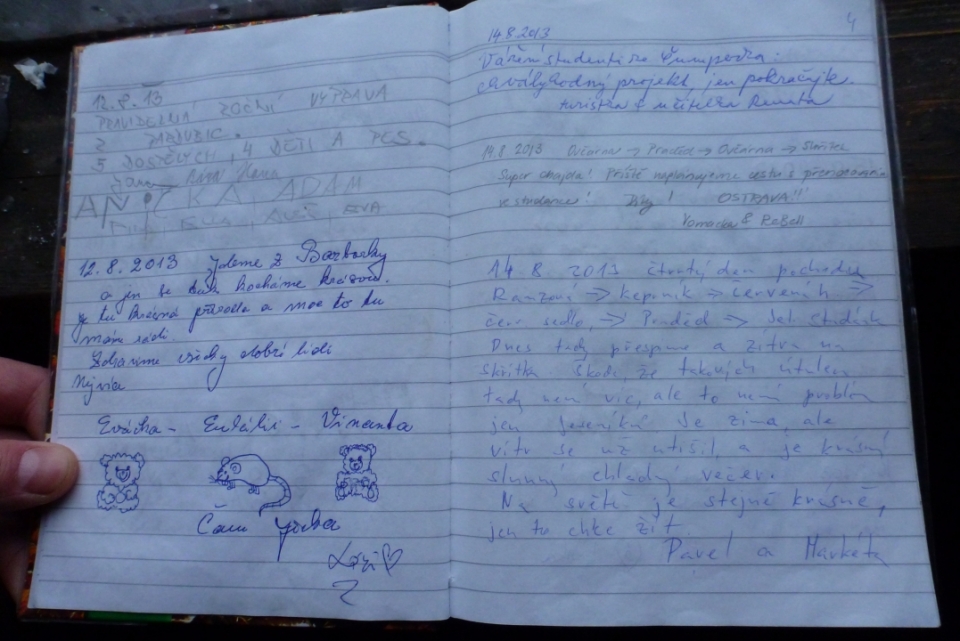 12.8.13
PRAVIDELNÁ ROČNÍ VÝPRAVA
Z PARDUBIC.
5 DOSPĚLÝCH, 4 DĚTI A PES.
Jana
ADAM
EVA
12.8.2013 Jdeme z Barborky
a jen se tak kocháme krásou.
je tu krásná příroda a moc to tu
máme rádi.
Zdravíme všechny dobré lidi
Evička - Eulálie -
14.8.2013
4
Vážení studenti ze Šumperka:
chvályhodný projekt, jen pokračujte.
turistka a učitelka Renata
14.8 2013 Ovčárna → Praděd → Ovčárna →
Super chajda! Příště naplánujeme cestu s přenocováním
ve studánce! Díky! OSTRAVA!!
& ReBell
14 8. 2013 čtvrtý den pochodu
Ramzová → Keprník → Červenoh →
Červ sedlo, → Praděd → Jelí studánk
Dnes tady přespíme a zítra na
Skřítka. Škoda, že takových útulen
tady není víc, ale to není problém
jen Jeseníků. Je zima, ale
vítr se už utišil, a je krásný
slunný chladný večer.
Na světě je stejně krásně,
jen to chce žít.
Pavel a Markéta